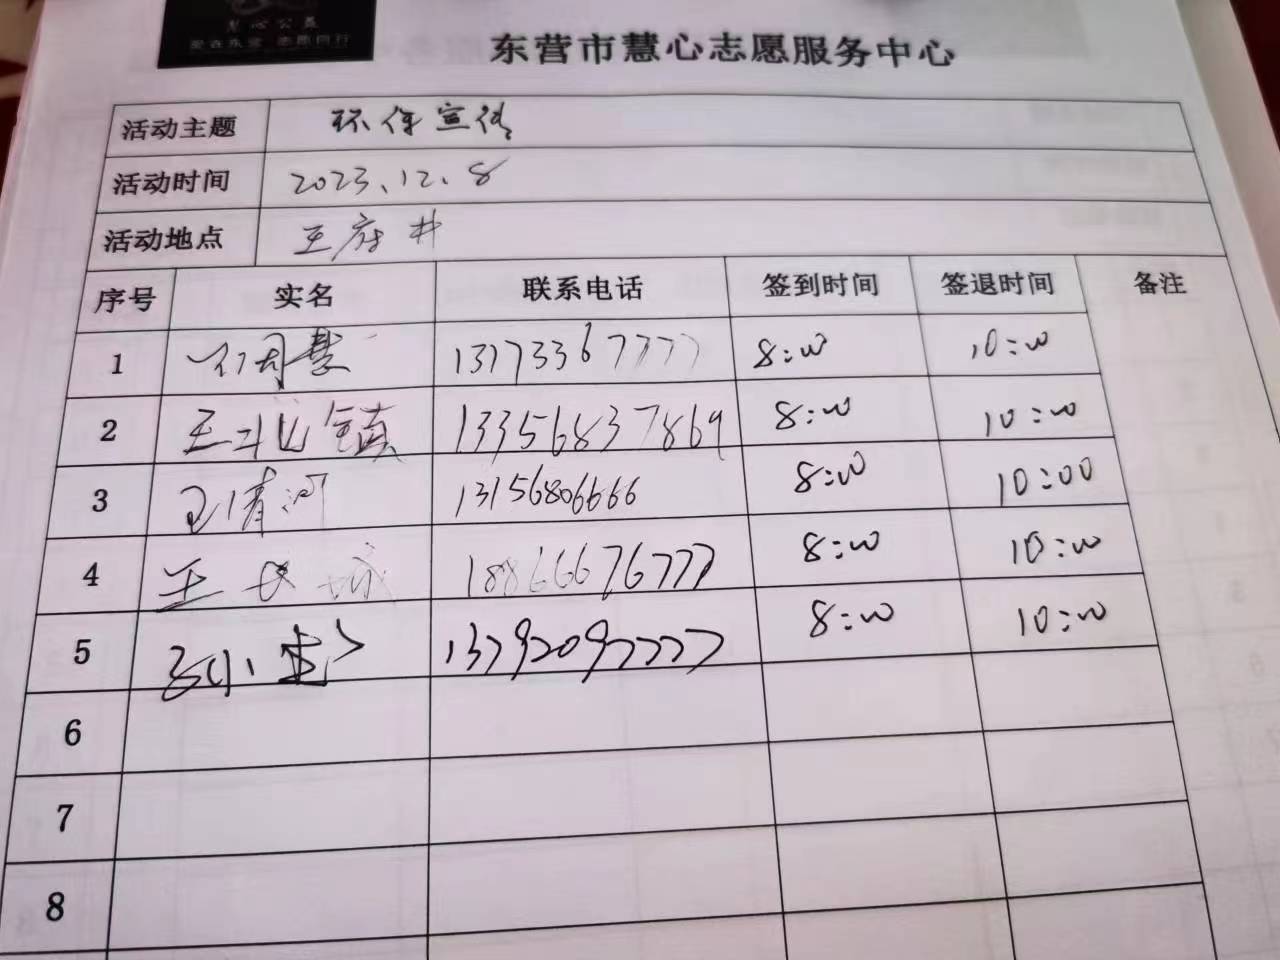 慧心公益
东营市慧心志愿服务中心
活动主题 环保宣传
活动时间 2023.12.8
活动地点 王府井
序号 实名 联系电话 签到时间 签退时间 备注
1 13173367777 8:00 10:00
2 王北镇 13356837869 8:00 10:00
3 王清河 13156806666 8:00 10:00
4 王长城 18866676777 8:00 10:00
5 13792097777 8:00 10:00
6
7
8